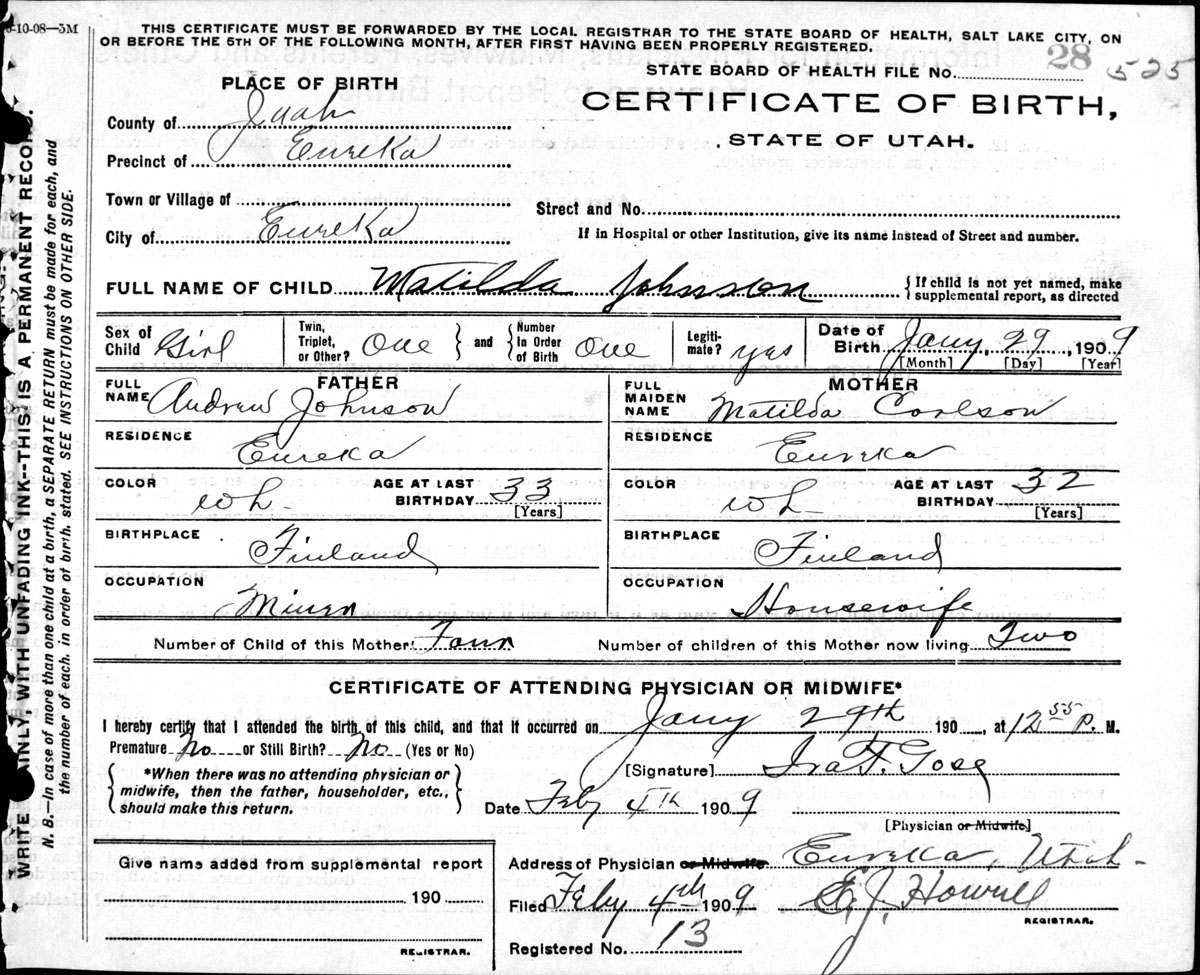 -10-08—5M
THIS CERTIFICATE MUST BE FORWARDED BY THE LOCAL REGISTRAR TO THE STATE BOARD OF HEALTH, SALT LAKE CITY, ON
OR BEFORE THE 5TH OF THE FOLLOWING MONTH, AFTER FIRST HAVING BEEN PROPERLY REGISTERED.
28
STATE BOARD OF HEALTH FILE No. 525
CERTIFICATE OF BIRTH,
STATE OF UTAH.
PLACE OF BIRTH
County of Juab
Precinct of Eureka
Town or Village of
Street and No.
City of Eureka
If in Hospital or other Institution, give its name instead of Street and number.
FULL NAME OF CHILD Matilda Johnson { If child is not yet named, make supplemental report, as directed
Sex of Child Girl
Twin, Triplet, or Other? One } and { Number In Order of Birth One
Legitimate? yes
Date of Birth Jany, 29, 1909
[Month] [Day] [Year]
FATHER
FULL NAME Andrew Johnson
RESIDENCE Eureka
COLOR wh-
AGE AT LAST BIRTHDAY 33
[Years]
BIRTHPLACE Finland
OCCUPATION Miner
MOTHER
FULL MAIDEN NAME Matilda Carlson
RESIDENCE Eureka
COLOR wh-
AGE AT LAST BIRTHDAY 32
[Years]
BIRTHPLACE Finland
OCCUPATION Housewife
Number of Child of this Mother Four
Number of children of this Mother now living Two
CERTIFICATE OF ATTENDING PHYSICIAN OR MIDWIFE*
I hereby certify that I attended the birth of this child, and that it occurred on Jany 29th 190 , at 12 55 P. M.
Premature No or Still Birth? No (Yes or No)
{ *When there was no attending physician or midwife, then the father, householder, etc., should make this return. }
[Signature] Ira F.
Date Feby 4th 1909
[Physician or Midwife]
Give name added from supplemental report
190
REGISTRAR.
Address of Physician or Midwife Eureka, Utah-
Filed Feby 4th 1909 E. J. Howell
REGISTRAR.
Registered No. 13
WRITE AINLY, WITH UNFADING INK--THIS IS A PERMANENT RECO
N. B.—In case of more than one child at a birth, a SEPARATE RETURN must be made for each, and
the number of each, in order of birth, stated. SEE INSTRUCTIONS ON OTHER SIDE.